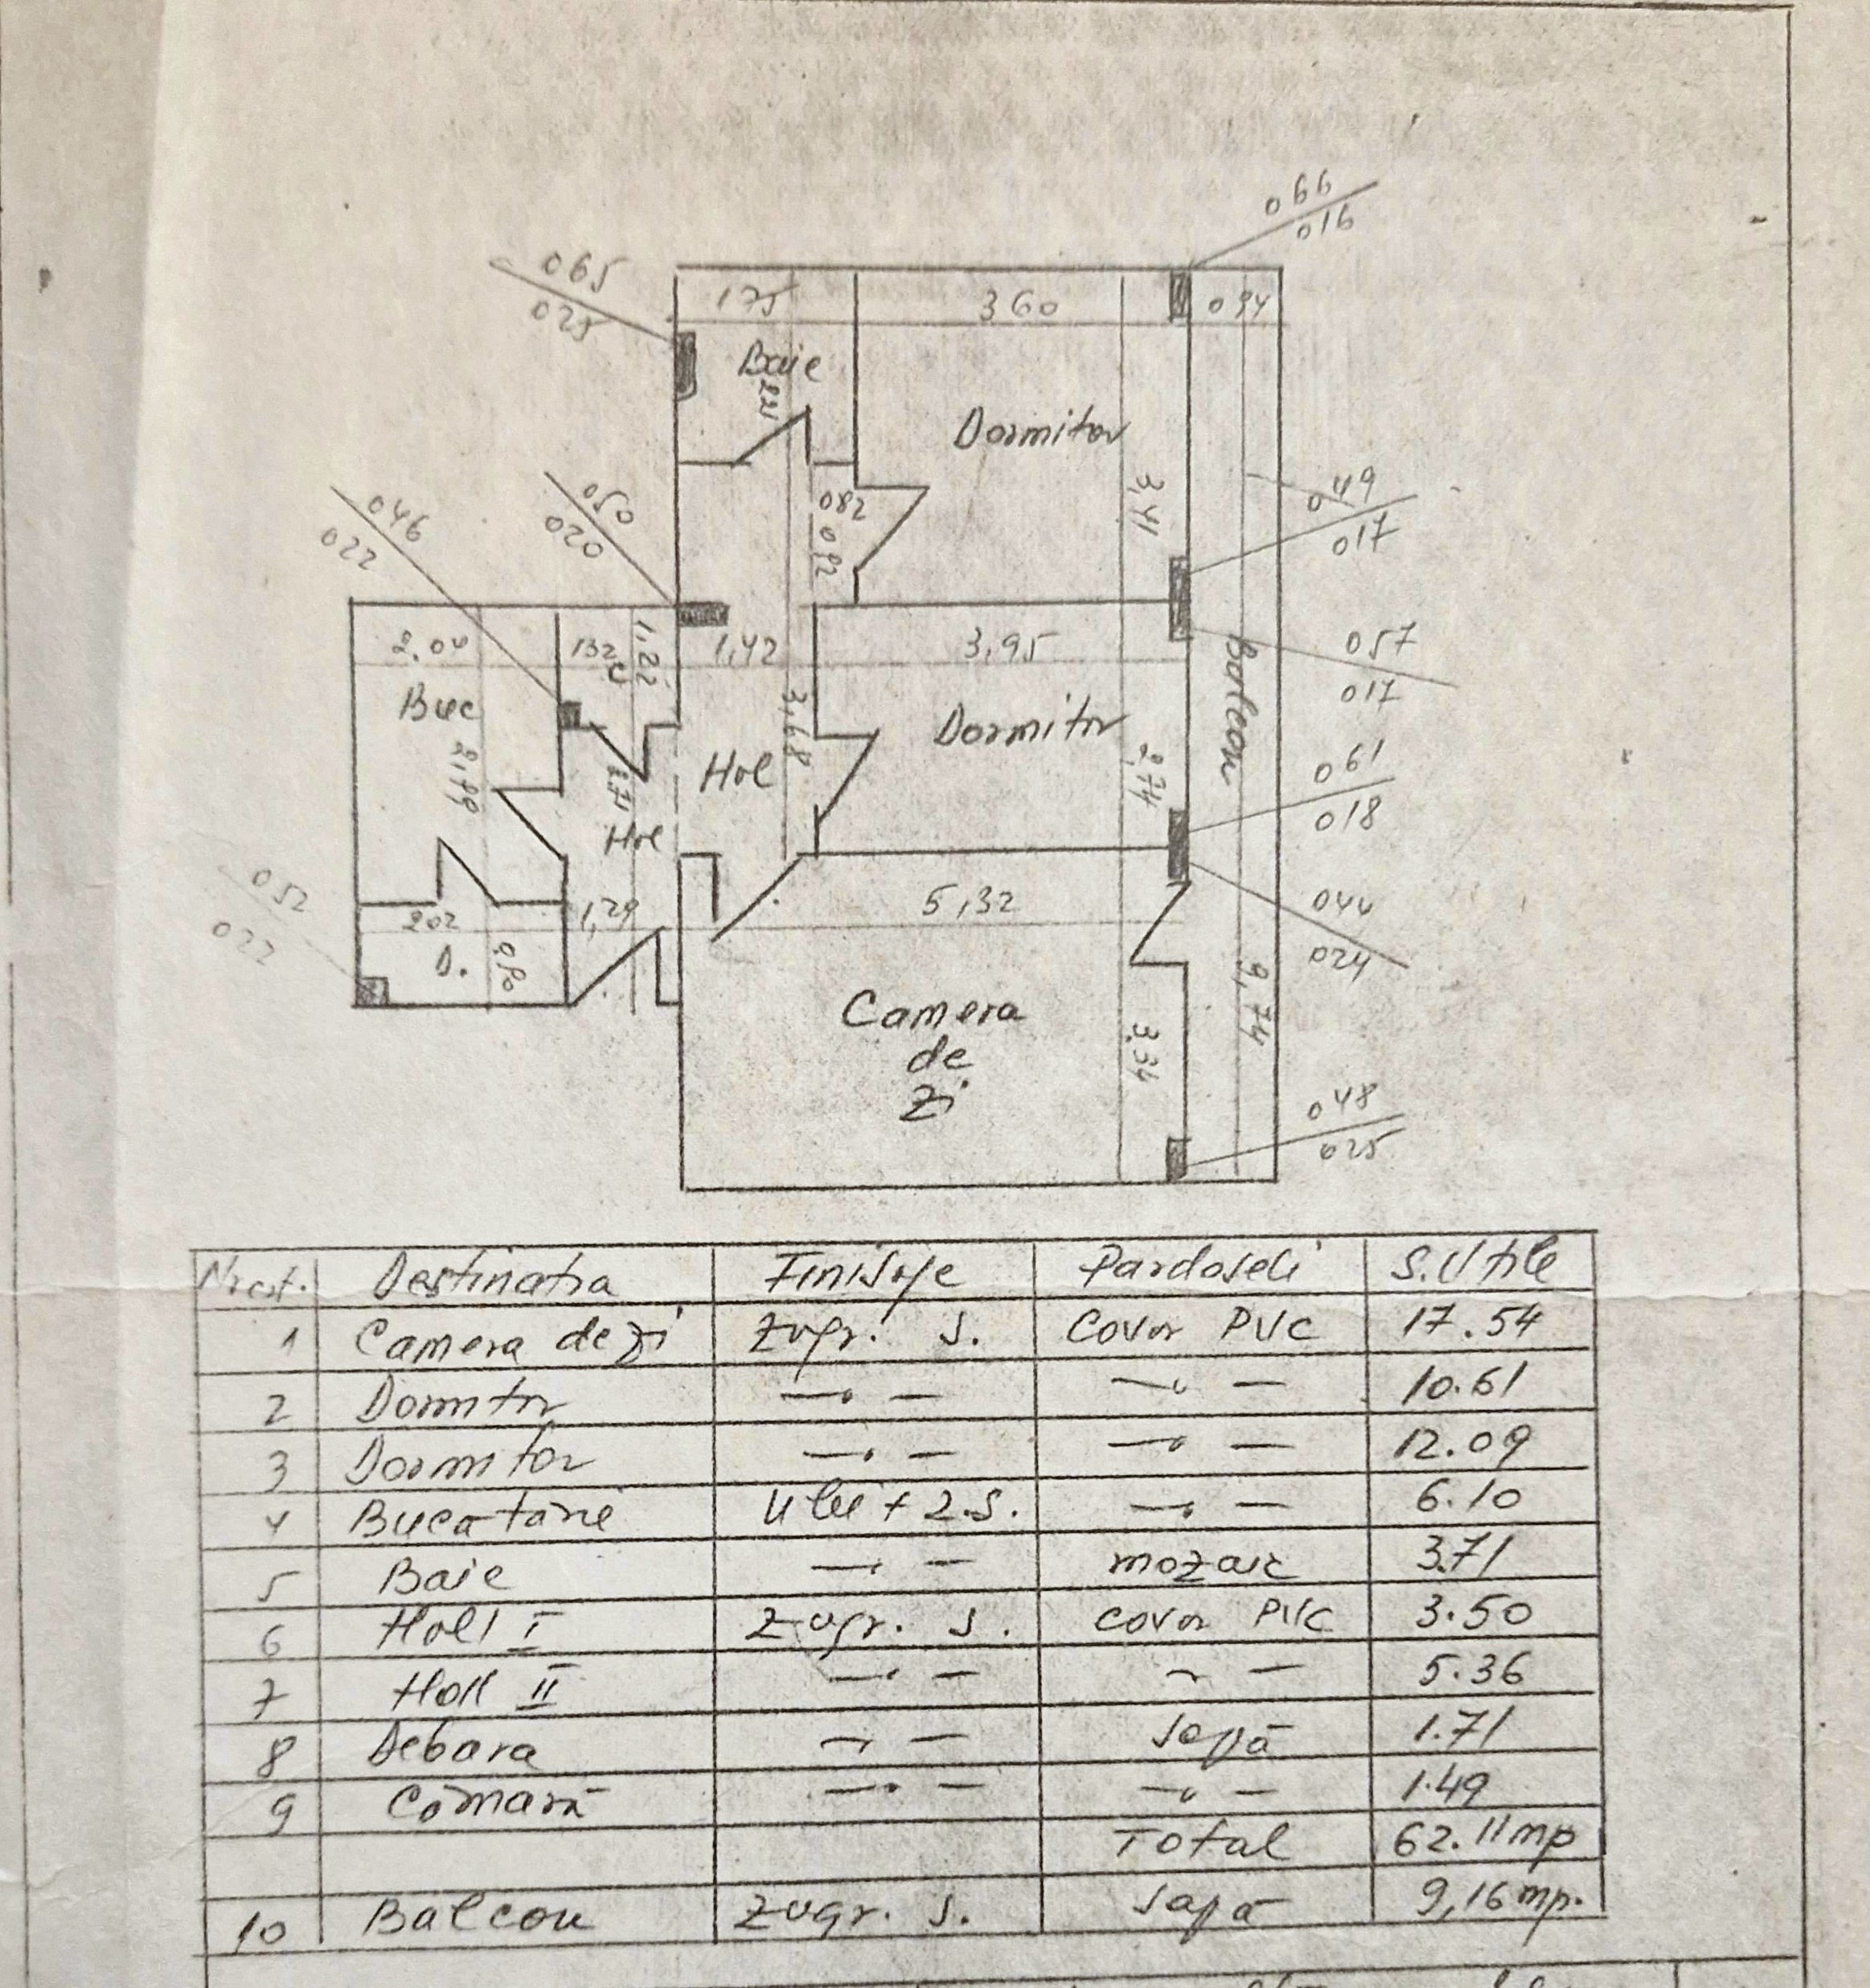 066
016
065
025
175
360
094
Baie
221
Dormitor
3,41
049
017
050
020
046
022
082
092
2.04
132
C
1,22
1,42
3,95
057
017
Buc
Dormitor
Balcon
3,68
Hol
2,74
061
018
Hol
052
022
202
1,29
5,32
044
024
D.
Camera
de
Zi
3.34
9,74
048
025
Nr crt. Destinatia Finisaje Pardoseli S.Utile
1 Camera de zi Zugr. S. Covor PVC 17.54
2 Dormitor —〃— —〃— 10.61
3 Dormitor —〃— —〃— 12.09
4 Bucatarie Ulei + Z.S. —〃— 6.10
5 Baie —〃— mozaic 3.71
6 Holl I Zugr. S. covor PVC 3.50
7 Holl II —〃— —〃— 5.36
8 Debara —〃— Sapă 1.71
9 Cămară —〃— —〃— 1.49
Total 62.11 mp
10 Balcon Zugr. S. Sapă 9,16 mp.